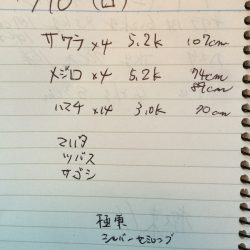 /10 (日)
サワラ×4 5.2k 107cm
メジロ×4 5.2k 74cm
89cm
ハマチ×14 3.0k 70cm
マルタ
ツバス
サゴシ
極東
シルバーセミロング